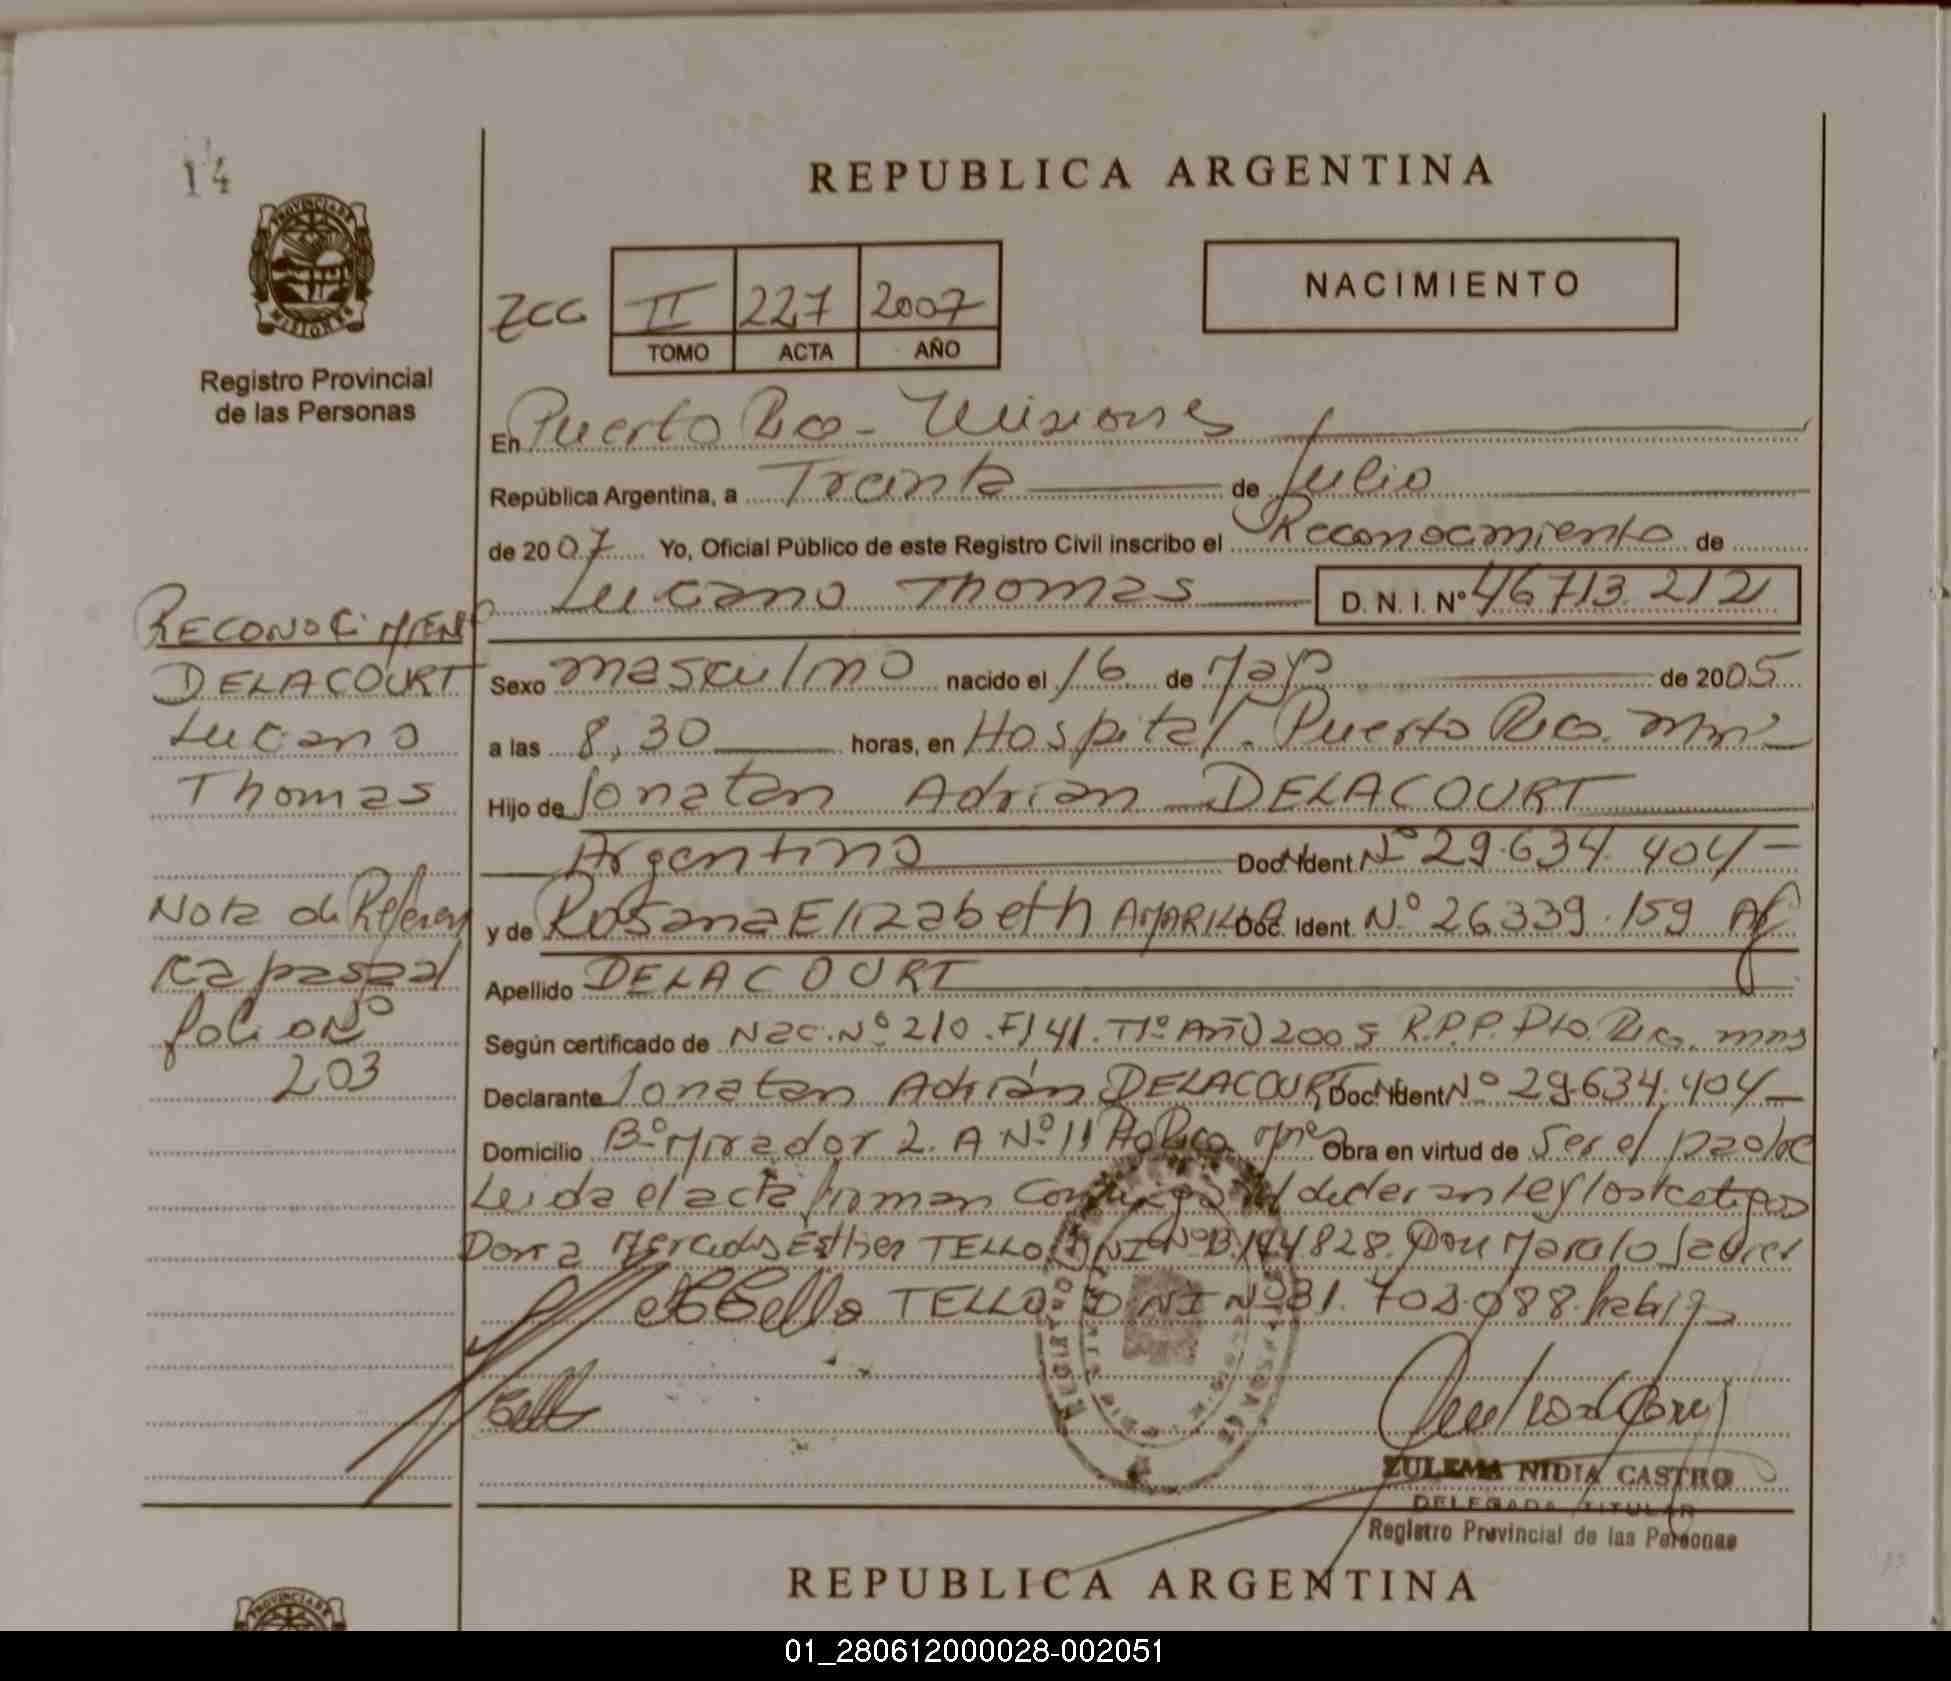 14
PROVINCIA DE
MISIONES
Registro Provincial
de las Personas
REPUBLICA ARGENTINA
NACIMIENTO
II 227 2007
TOMO ACTA AÑO
En Puerto Rico - Misiones
República Argentina, a Treinta de Julio
de 2007 Yo, Oficial Público de este Registro Civil inscribo el Reconocimiento de
Luciano Thomas D. N. I. Nº 46713.212
Sexo masculino nacido el 16 de Mayo de 2005
a las 8,30 horas, en Hospital. Puerto Rico. Mnes
Hijo de Jonatan Adrian DELACOURT
Argentino Doc. Ident. Nº 29.634.404
y de Rosana Elizabeth AMARILLA Doc. Ident. Nº 26.339.159
Apellido DELACOURT
Según certificado de Nac. Nº 210. Fº 41. Tº Iº Año 2005 R.P.P. Pto. Rico. mns
Declarante Jonatan Adrián DELACOURT Doc. Ident Nº 29.634.404
Domicilio Bº Mirador 2. A Nº 11 Pto Rico Mnes Obra en virtud de Ser el padre
Leida el acta firman conmigo el declarante y los testigos
Dona Mercedes Esther TELLO DNI Nº Don Marcelo Javier
TELLO D NI Nº 31.
RECONOCIMIENTO
DELACOURT
Luciano
Thomas
Nota de Referen
cia pasa al
folio Nº
203
ZULEMA NIDIA CASTRO
DELEGADA TITULAR
Registro Provincial de las Personas
REPUBLICA ARGENTINA
PROVINCIA DE
01_280612000028-002051